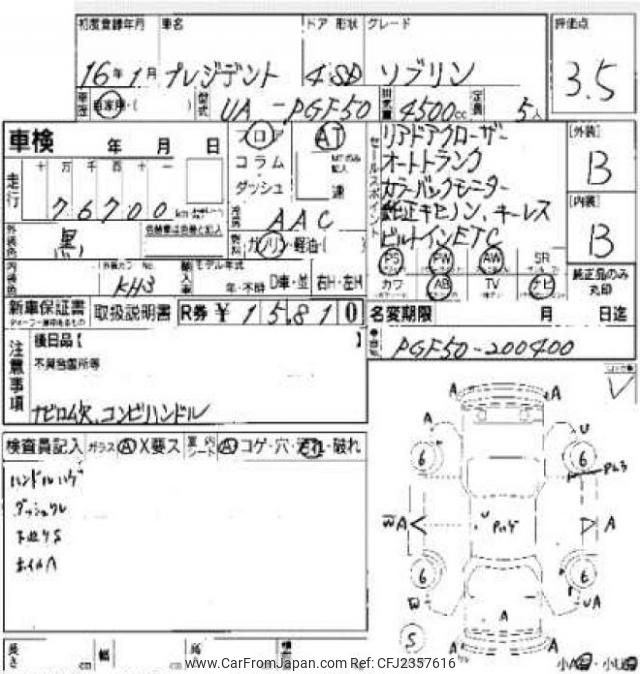 初度登録年月 車名 ドア 形状 グレード 評価点
16年1月 プレジデント 4 SD ソブリン 3.5
車歴 自家用・( ) 型式 UA-PGF50 排気量 4500cc 定員 5人
車検 年 月 日
フロア AT
コラム・ダッシュ 速
セールスポイント
リアドアクローザー
オートトランク
カラーバックモニター
純正キセノン、キーレス
ビルトインETC
[外装] B
[内装] B
走行 十 万 千 百 十 一
76700 km
冷房 AAC
外装色 黒
燃料 ガソリン・軽油・( )
PS PW AW SR
カワ AB TV ナビ
純正品のみ丸印
内装色 外装カラーNo. KH3 輸入車 モデル年式 年・不明 D車・並 右H・左H
新車保証書 取扱説明書 R券 ¥15,810
名変期限 月 日迄
車台No. PGF50-200400
注意事項
後日品【 】
不具合箇所等
ナビロム欠、コンビハンドル
検査員記入 ガラス A X要ス 室内シート A コゲ・穴・汚れ・破れ
ハンドルハゲ
ダッシュクレ
下廻りS
ホイルA
A A
A U
6 6
WA A
U
6 6
W UA
A
S
A A
長さ cm 幅 高さ
www.CarFromJapan.com Ref: CFJ2357616